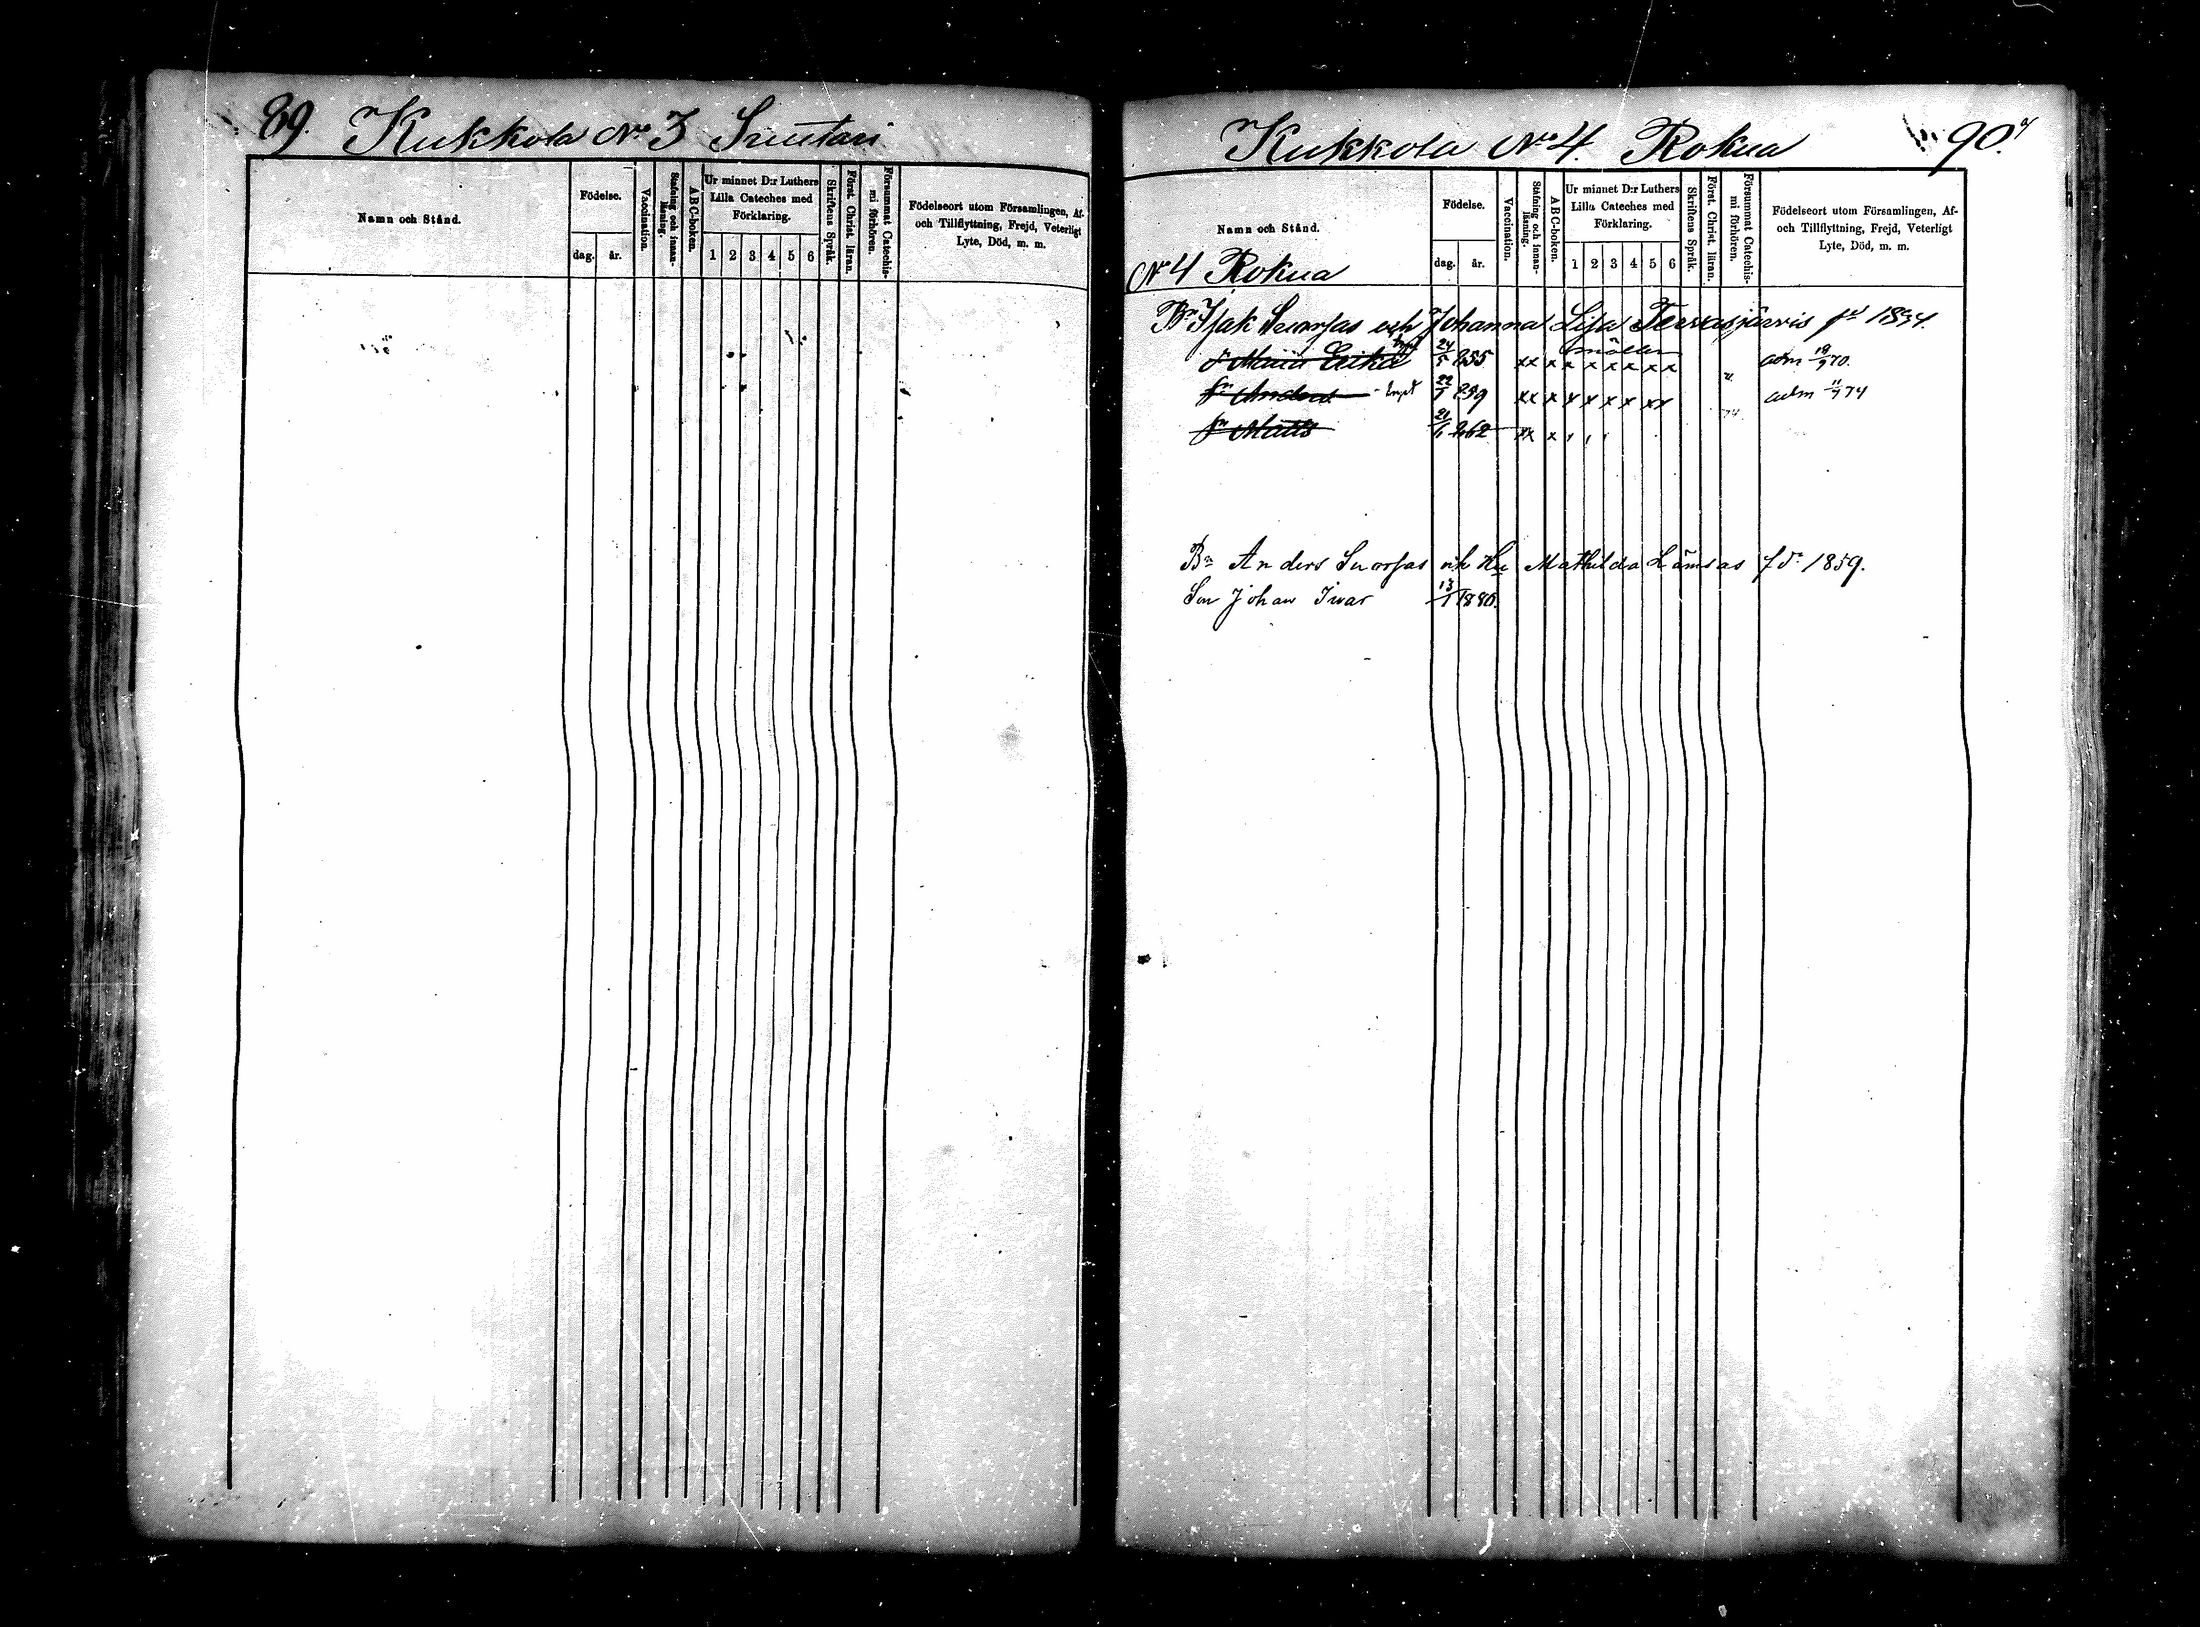 89. Kukkola No 3 Suutari
Namn och Stånd.
Födelse.
dag. år.
Vaccination.
Stafning och innan-läsning.
ABC-boken.
Ur minnet D:r Luthers
Lilla Cateches med
Förklaring.
1 2 3 4 5 6
Skriftens Språk.
Först. Christ. läran.
Försummat Catechis-
mi förhören.
Födelseort utom Församlingen, Af-
och Tillflyttning, Frejd, Veterligt
Lyte, Död, m. m.
Kukkola No 4. Rokua 90.
Namn och Stånd.
Födelse.
dag. år.
Vaccination.
Stafning och innan-läsning.
ABC-boken.
Ur minnet D:r Luthers
Lilla Cateches med
Förklaring.
1 2 3 4 5 6
Skriftens Språk.
Först. Christ. läran.
Försummat Catechis-
mi förhören.
Födelseort utom Församlingen, Af-
och Tillflyttning, Frejd, Veterligt
Lyte, Död, m. m.
No 4 Rokua
Bn Isak Suorsas och Johanna Lisa Tervasjärvis 1834.
Maria Erika 24/5 855 xx x x x x x x x adm 70.
Sn Anders 22/1 859 xx x x x x x x x adm 11/7 74
Sn Matts 21/1 862 xx x
74
Bn Anders Suorsas och Hu Mathilda Lämsas fd 1859.
Son Johan Ivar 13/1 1880.